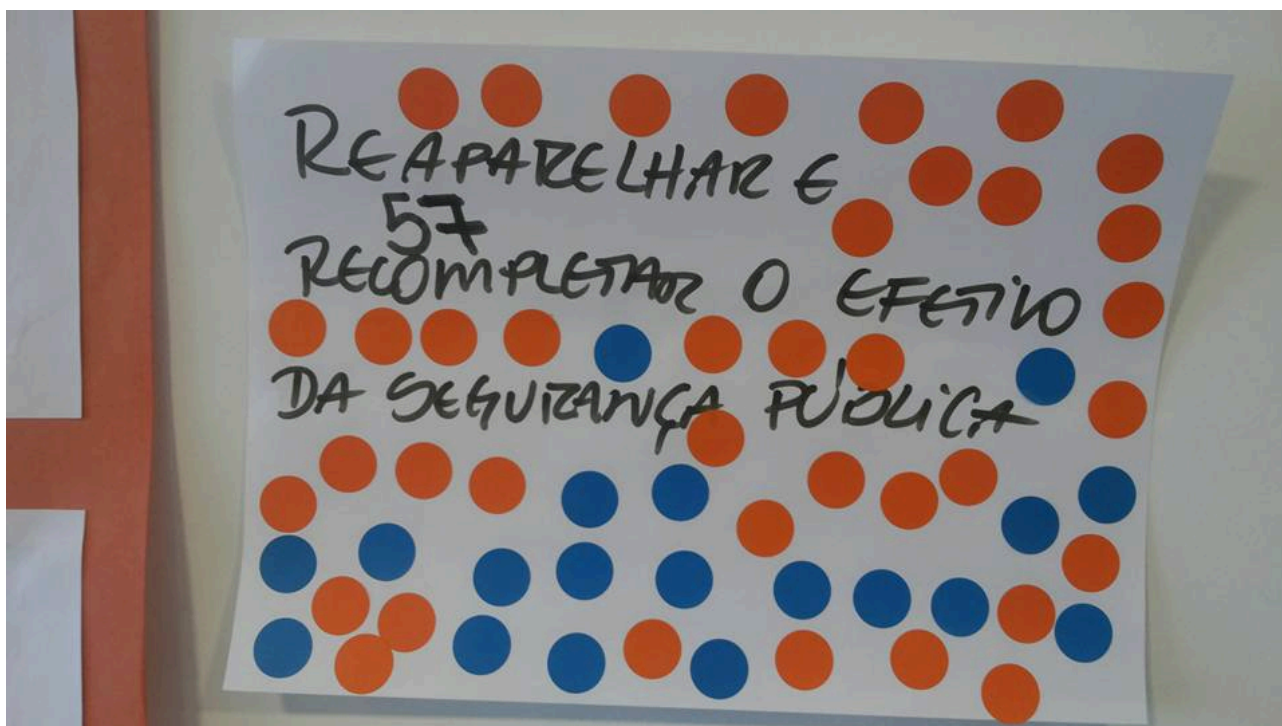 REAPARELHAR E
57
RECOMPLETAR O EFETIVO
DA SEGURANÇA PÚBLICA